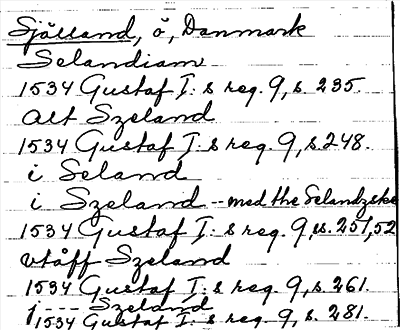 Själland, ö, Danmark
Selandiam
1534 Gustaf I:s reg. 9, s. 235.
Alt Szeland
1534 Gustaf I:s reg. 9, s. 248.
i Seland
i Szeland -- med the Selandzske
1534 Gustaf I:s reg. 9, ss. 251, 52
vtåff Szeland
1534 Gustaf I:s reg. 9, s. 261.
j ---- Szeland
1534 Gustaf I:s reg. 9, s. 281.